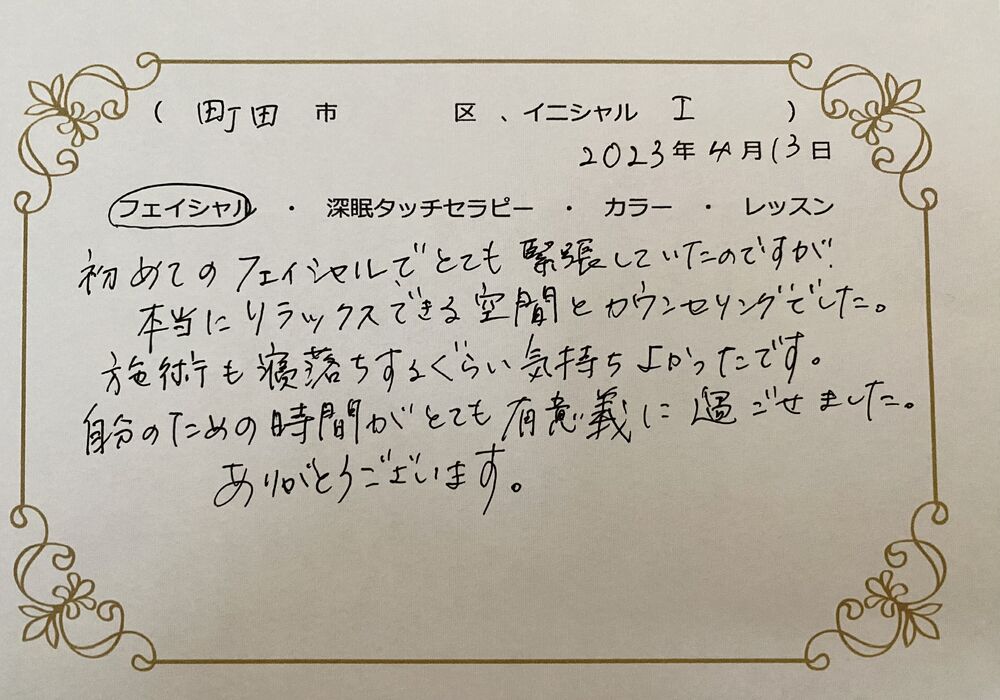 ( 町田 市 区 、イニシャル I )
2023年 4月13日
フェイシャル ・ 深眠タッチセラピー ・ カラー ・ レッスン
初めてのフェイシャルでとても緊張していたのですが、
本当にリラックスできる空間とカウンセリングでした。
施術も寝落ちするぐらい気持ちよかったです。
自分のための時間がとても有意義に過ごせました。
ありがとうございます。